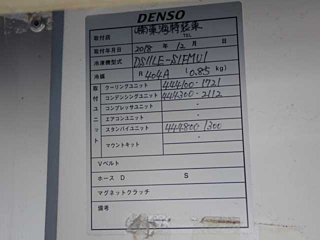 DENSO
取付店 ㈱東海特装車
TEL
取付年月日 2018年 12月 日
冷凍機型式 DS11LE-S1FMU1
冷媒 R 404A (0.85 kg)
取付ユニット
クーリングユニット 444100-1721
コンデンシングユニット 444300-2112
コンプレッサユニット -
エアコンユニット -
スタンバイユニット 449800-1300
マウントキット -
Vベルト
ホース D S
マグネットクラッチ
備考